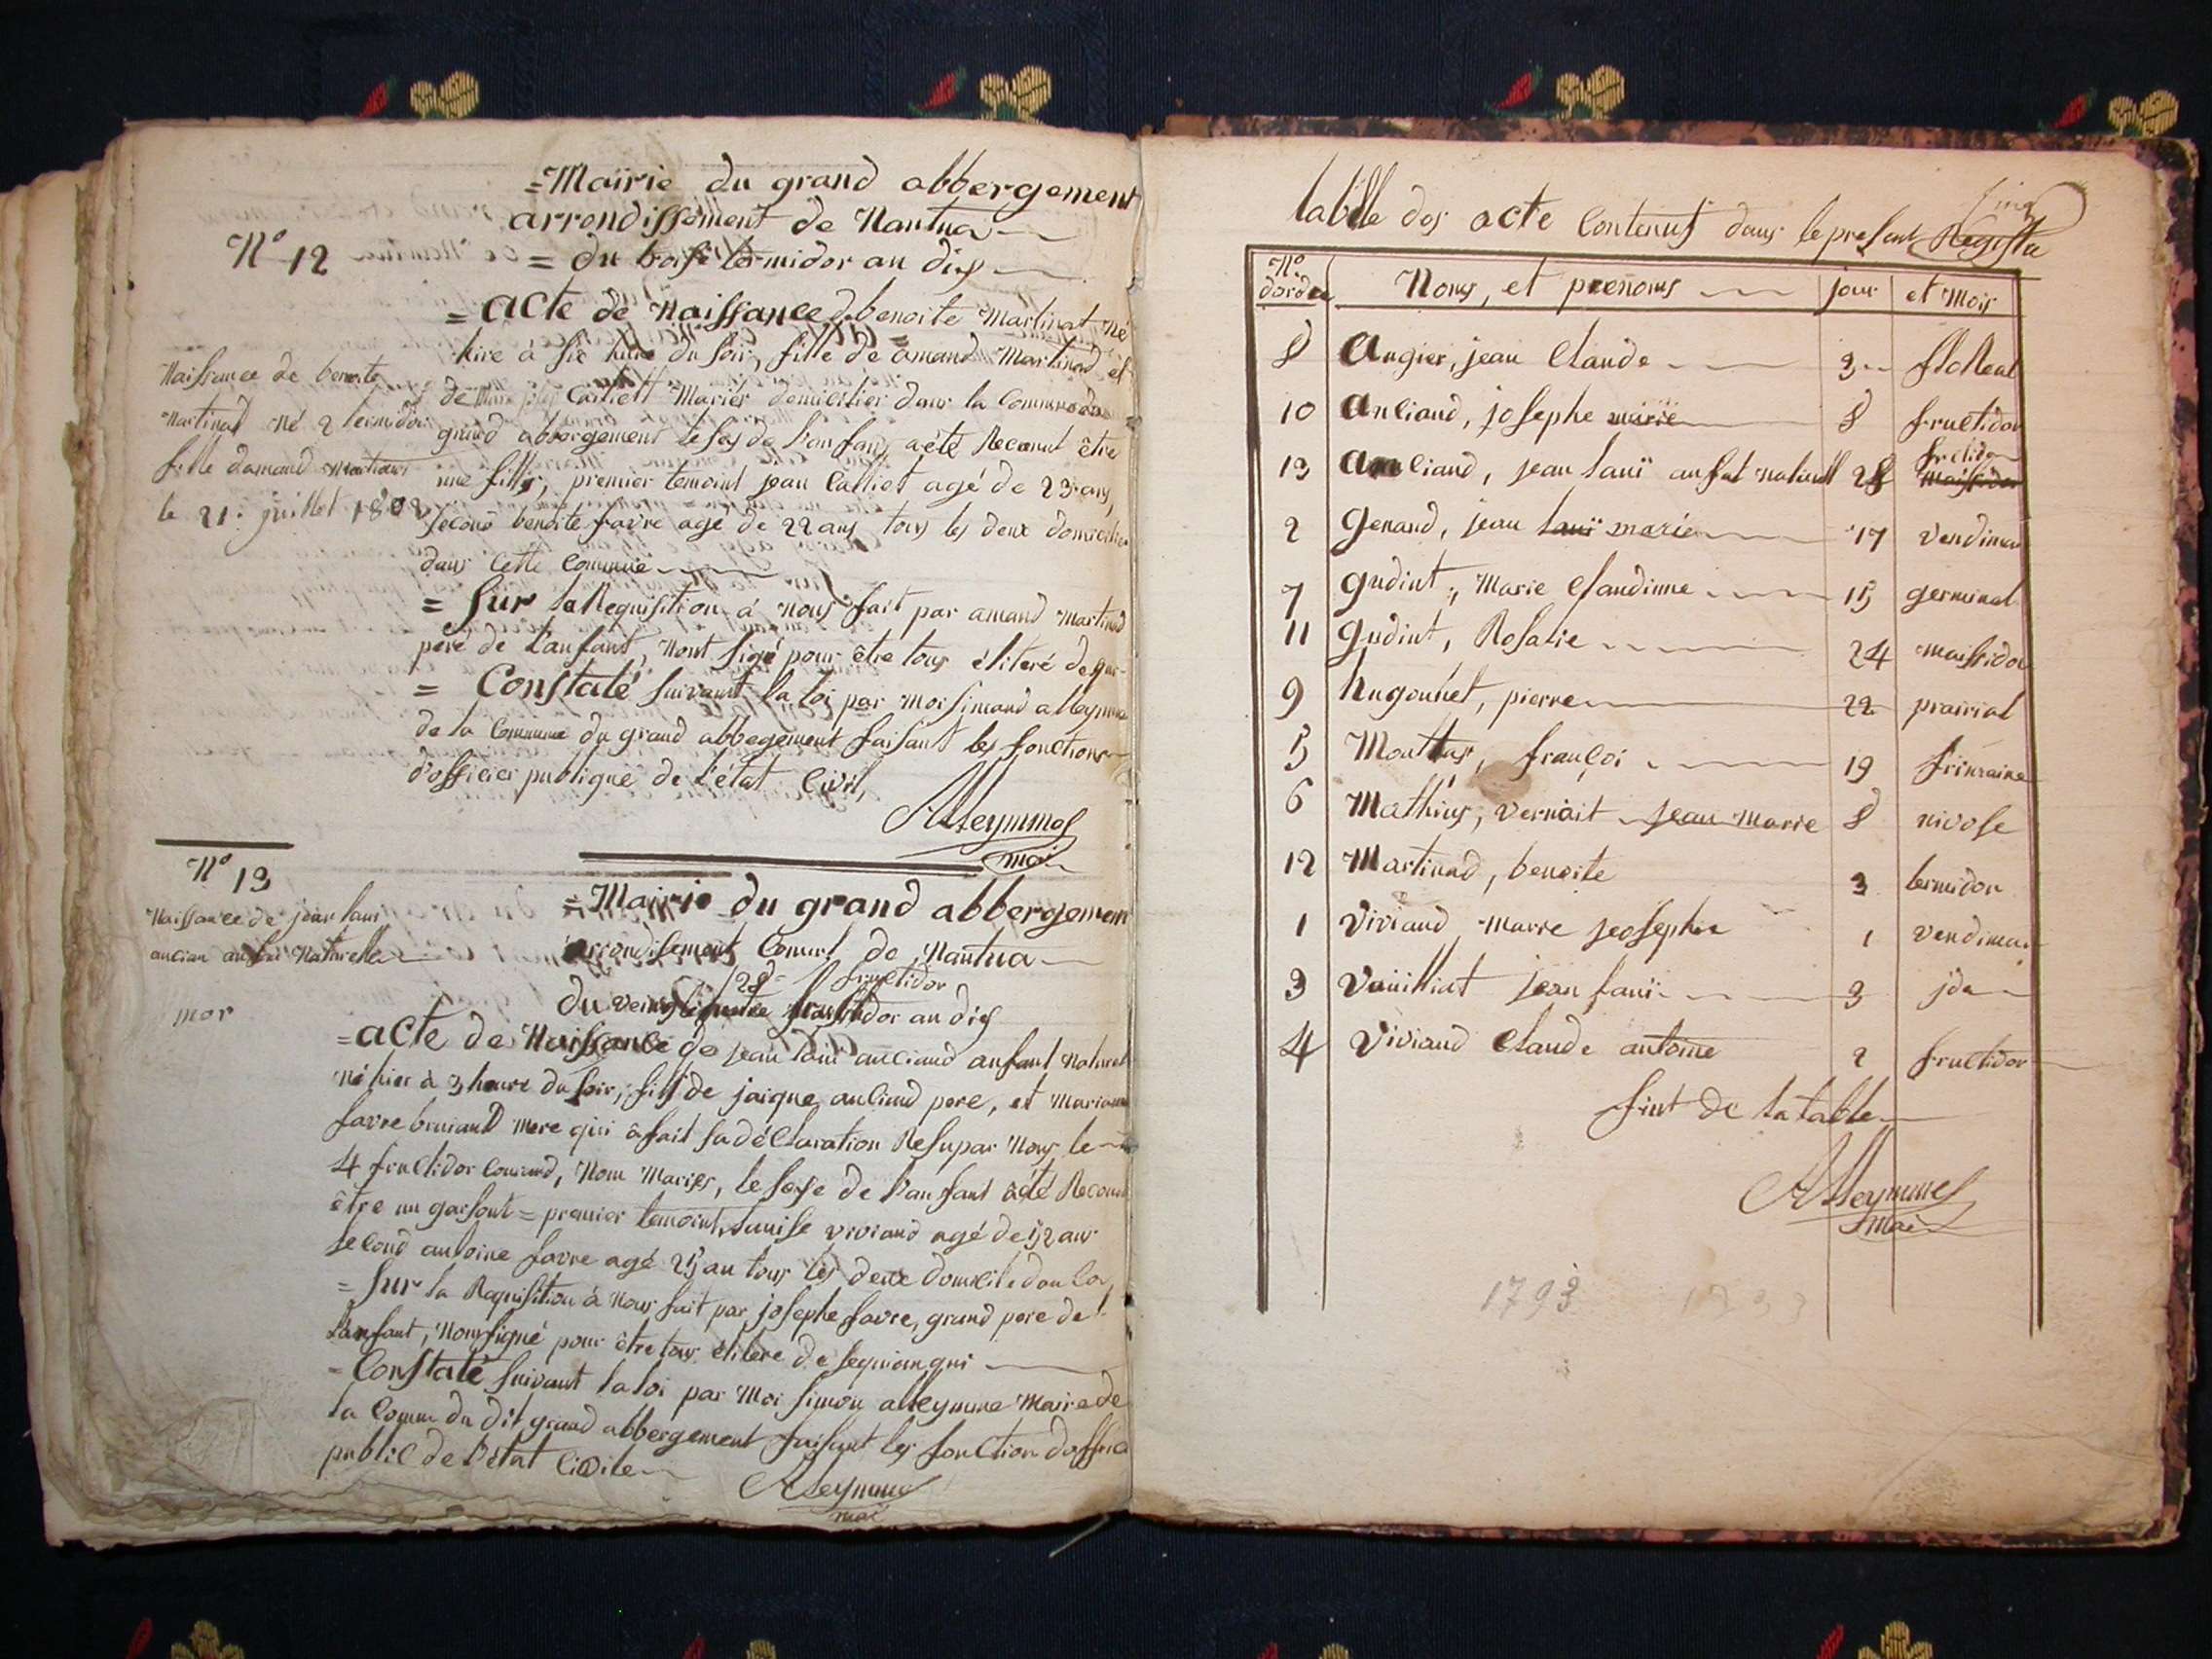 =Mairie du grand abbergement
arrondissement de Nantua
N° 12
= du troisë termidor an dix
= acte de Naissance de benoite Martinat né
hire à sie hure du soir, fille de amand Martinad et
de Calliett Mariés domicilier dans la Commune du
grand abbergement le sex de l'anfans aété Reconut être
une fille, premier temoint jean Calliet agé de 23 ans,
second benoite favre agé de 22 ans tous les deux domicilier
dans Cette Commune
Naissance de benoite
Martinad Né 2 termidor
fille damand Martinad
le 21 juillet 1802
= Sur la Requisition à Nous fait par amand Martinad
pere de L'anfant, Nont signé pour être tous élitéré de
= Constaté Suivant la loi par Moi simond alleymme
de la Commune du grand abbegement faisant les fonctions
d'officier publique de L'état Civil,
Alleymmes
mai
N° 13
Naissance de jean laui
ancian anfan Naturelle
mor
=Mairie du grand abbergemen
arrondisement Comunl de Nantua
28 fructidor
du an dix
=acte de Naissance de jean laui anciand anfant Naturel
Né hier à 3 heure du soir, fils de jaique anciand pere, et Mariane
favre bruiand mere qui à fait sa déClaration Resu par Nous le
4 fructidor Courand, Nom Maries, le sexe de l'anfant àété Reconut
être un garsont = premier temoint, Lauise viviand agé de 52 ans
second antoine favre agé 25 an tous les deux domicile dan la
= Sur la Requisition à Nous fait par josephe favre, grand pere de
Lanfant, Nonsigné pour être tous élitere de sequianqui
= Constaté Suivant la loi par Moi simon alleymme Maire de
la Comm du dit grand abbergement faisant les fonction doffici
public de L'état Civile
Alleymmes
mai
table des acte Contenus dans le present Registre
N° dordre Noms, et prenoms jour et Mois
8 Angier, jean Claude 3 floReal
10 Anciand, josephe marie 8 fructidor
13 Anciand, jean laui anfat naturell 28 fructidor
2 Genand, jean laui marie 17 vendimai
7 gudint, Marie Claudinne 15 germinal
11 gudint, Rosalie 24 Maissidor
9 hugonnet, pierre 22 prairial
5 françoi 19 frimaire
6 Mathieux, vernait jean marie 8 nivose
12 Martinad, benoite 3 termidor
1 Viviand Marie josephe 1 vendimai
3 Vuilliat jean laui 3 jde
4 Viviand Claude antoine 2 fructidor
fint de la table
Alleymmes
mai
1793